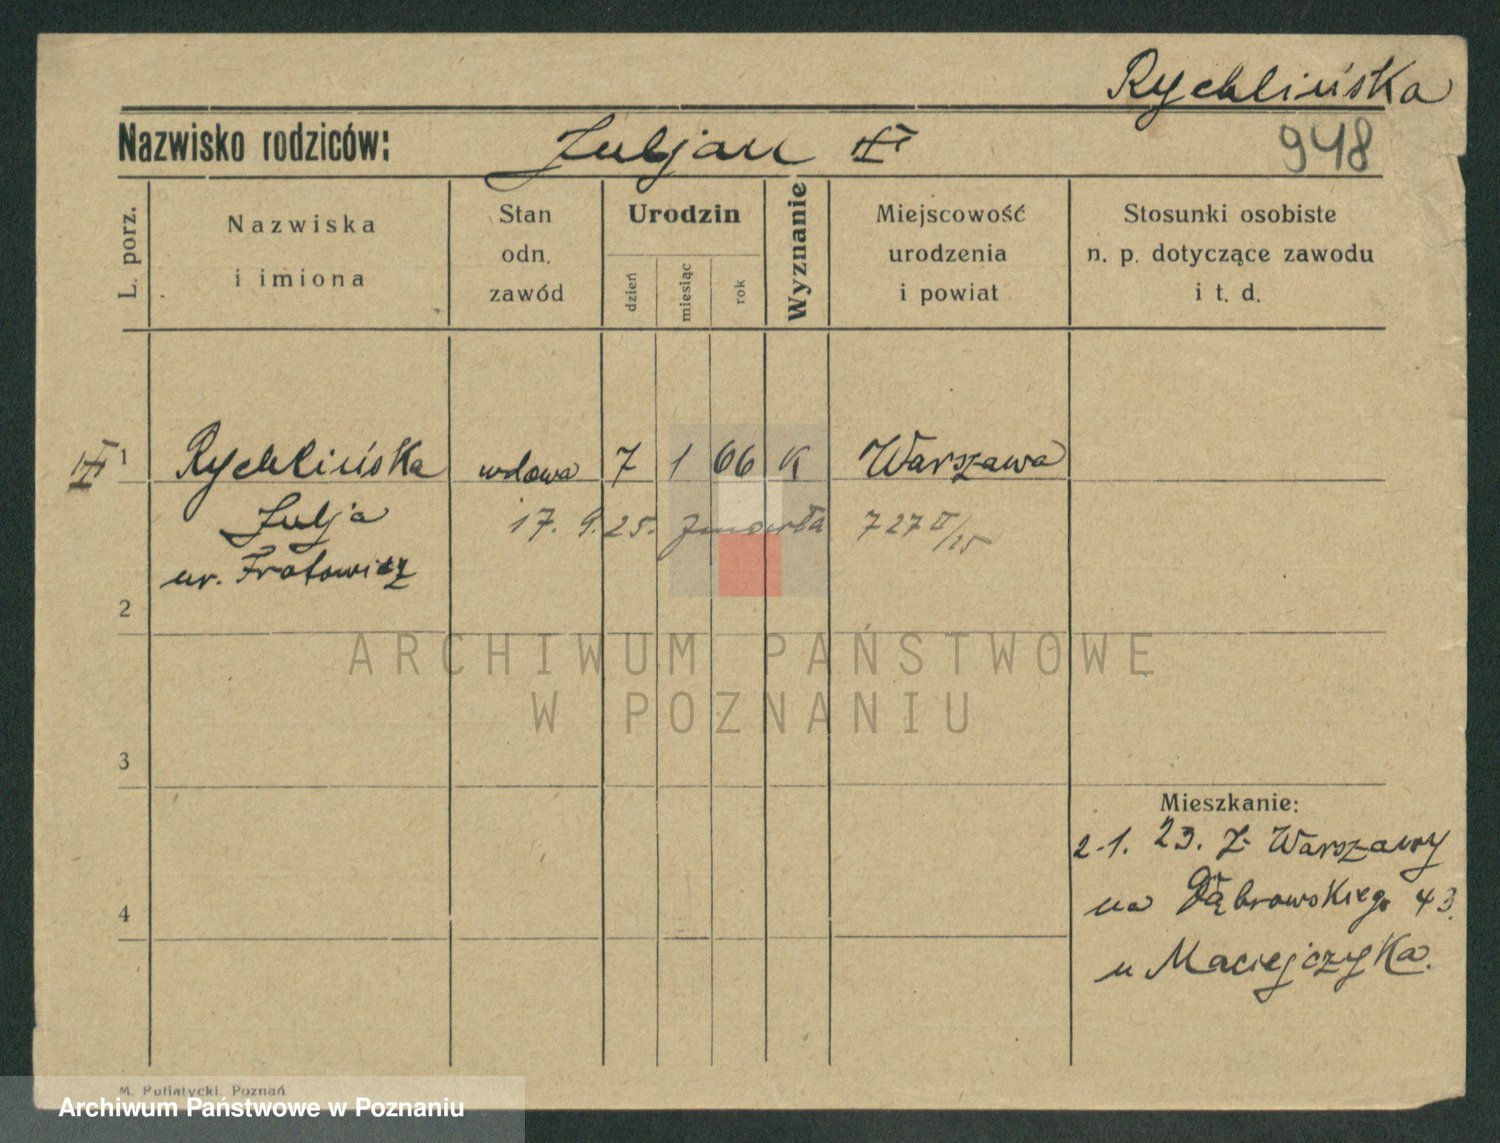 Rychlińska
948
Nazwisko rodziców: Juljan
L. porz.
Nazwiska i imiona
Stan odn. zawód
Urodzin
dzień
miesiąc
rok
Wyznanie
Miejscowość urodzenia i powiat
Stosunki osobiste n. p. dotyczące zawodu i t. d.
1 Rychlińska wdowa 7 1 66 K Warszawa
Julja 17. 9. 25. zmarła 727
ur.
2
3
4
ARCHIWUM PAŃSTWOWE
W POZNANIU
Mieszkanie:
2.1. 23. Z Warszawy
na Dąbrowskiego 43.
u Maciejczyka.
M. Putiatycki, Poznań
Archiwum Państwowe w Poznaniu